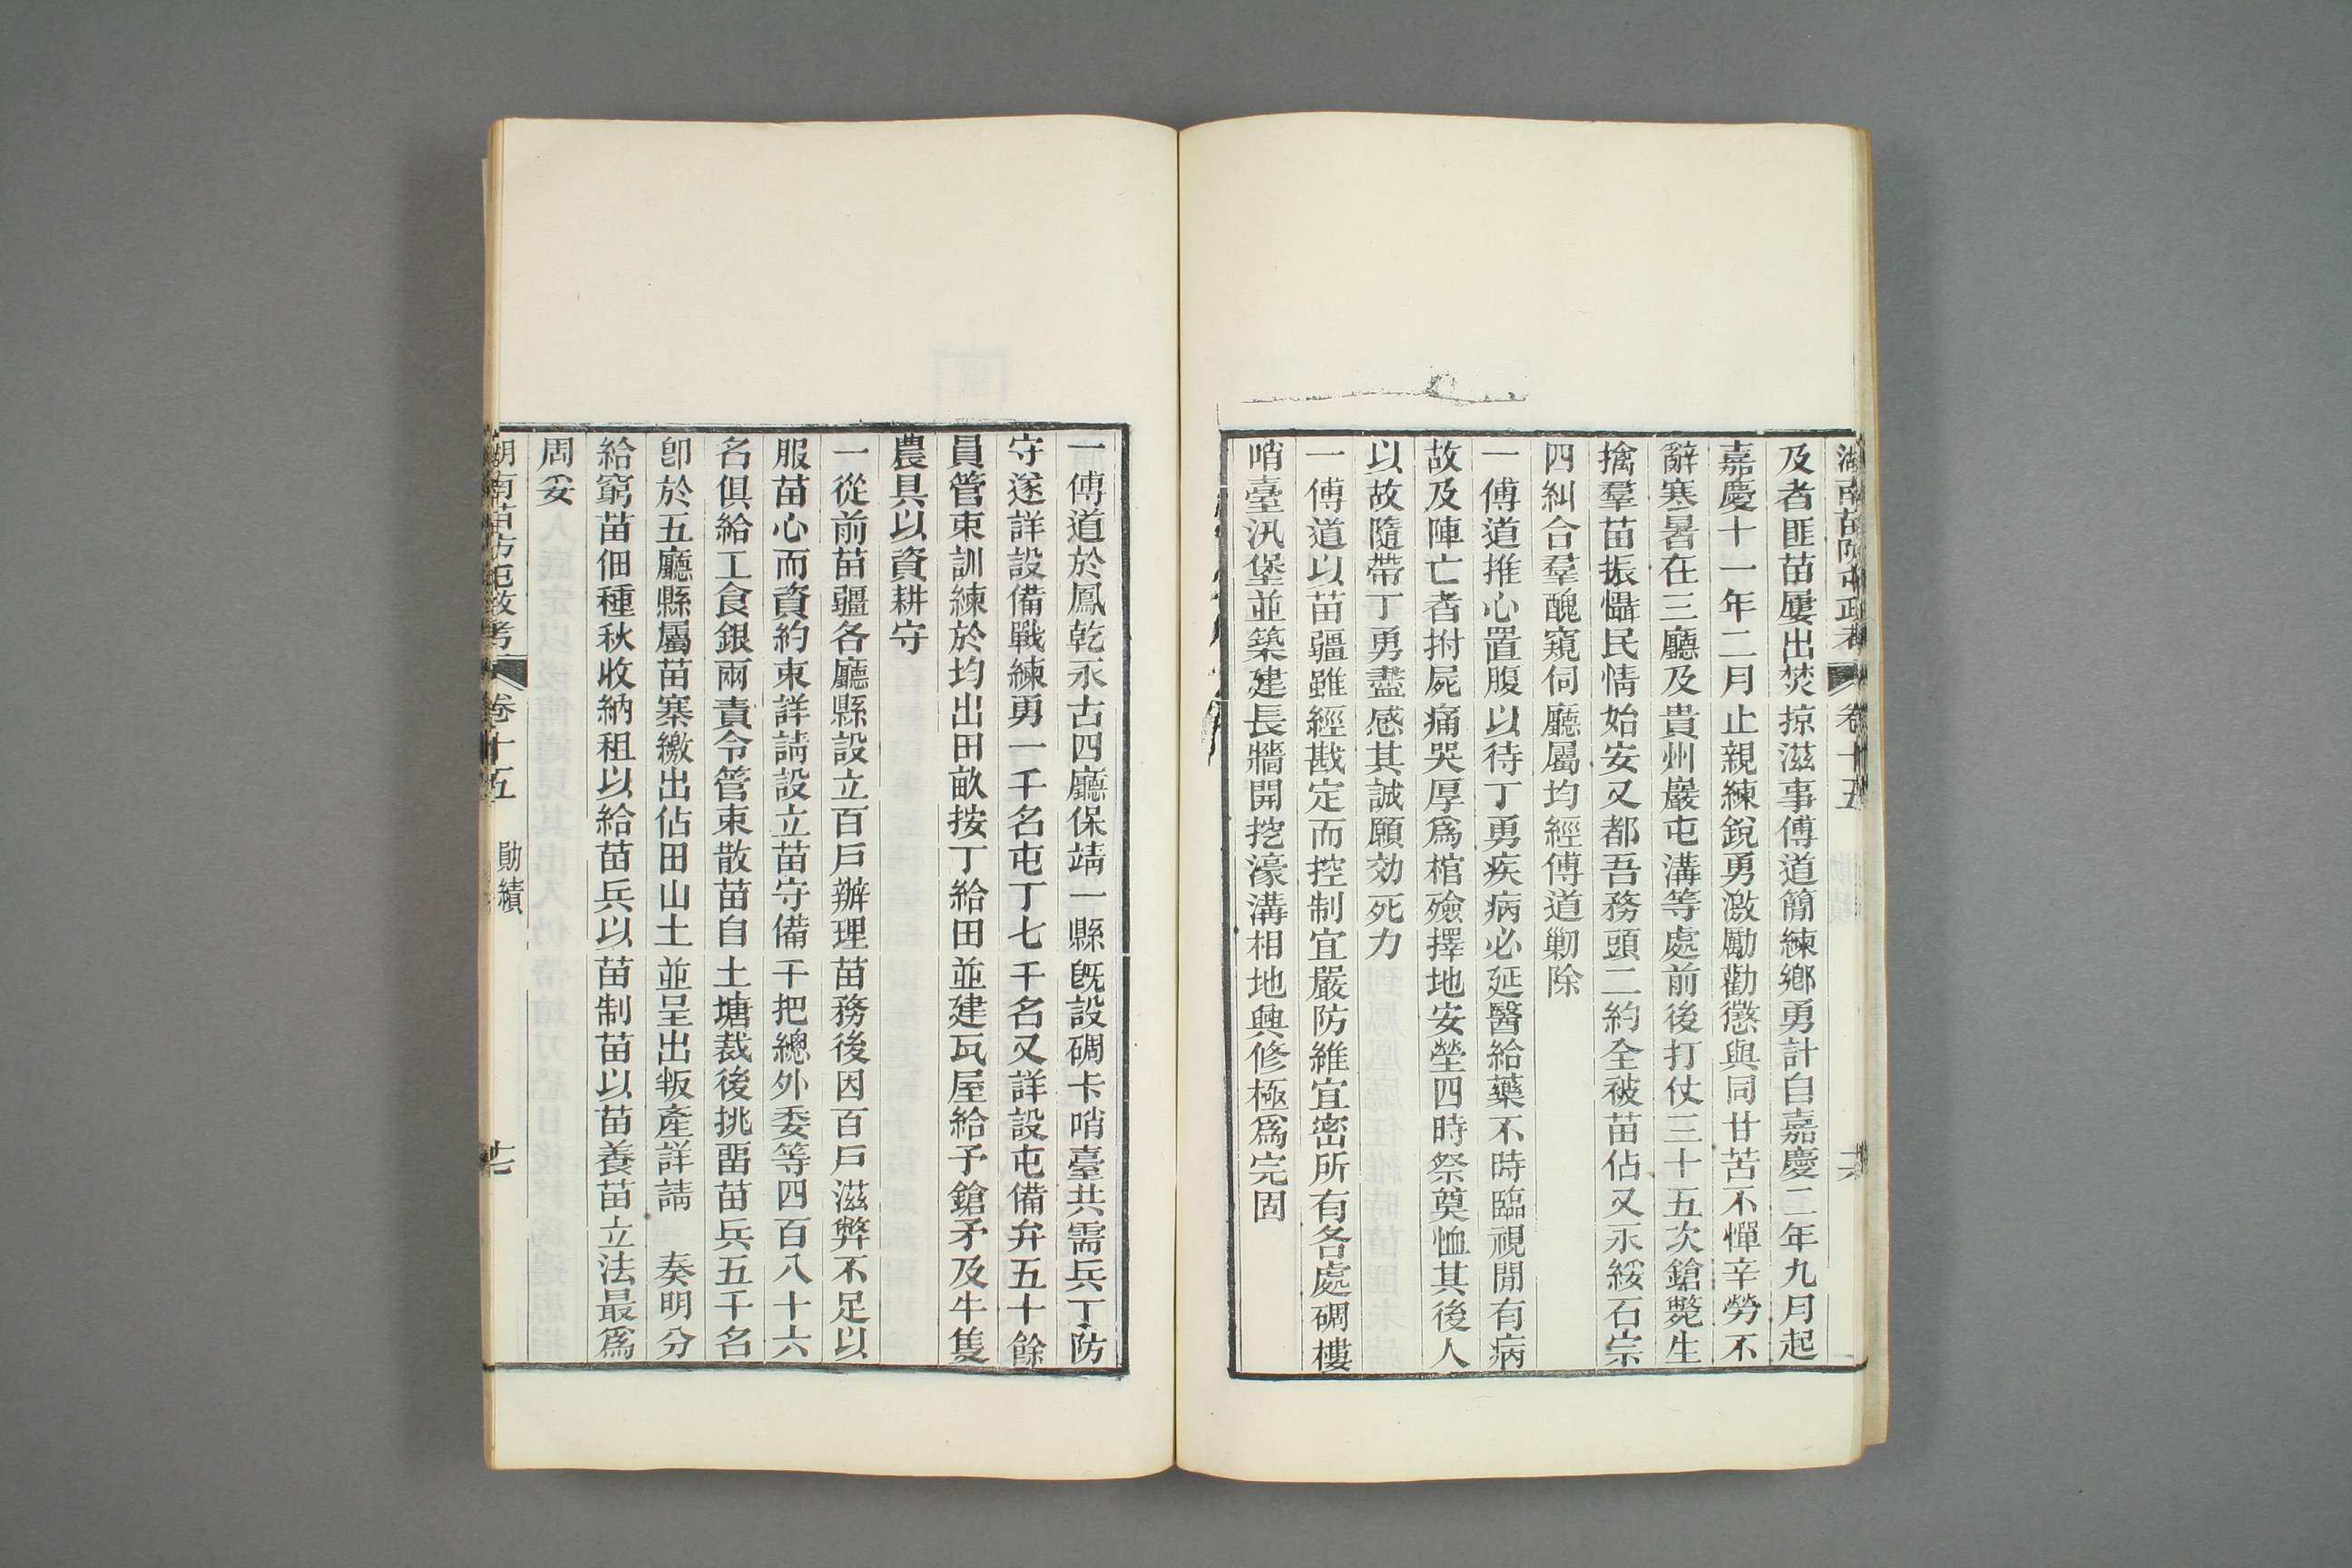 湖南苗防屯政考 卷十五
及者匪苗屢出焚掠滋事傅道簡練鄉勇計自嘉慶二年九月起
嘉慶十一年二月止親練銳勇激勵勸懲與同甘苦不憚辛勞不
辭寒暑在三廳及貴州巖屯溝等處前後打仗三十五次鎗斃生
擒羣苗振懾民情始安又都吾務頭二約全被苗佔又永綏石宗
四糾合羣醜窺伺廳屬均經傅道勦除
一傅道推心置腹以待丁勇疾病必延醫給藥不時臨視閒有病
故及陣亡者拊屍痛哭厚爲棺殮擇地安塋四時祭奠恤其後人
以故隨帶丁勇盡感其誠願効死力
一傅道以苗疆雖經戡定而控制宜嚴防維宜密所有各處碉樓
哨臺汛堡並築建長牆開挖濠溝相地興修極爲完固
一傅道於鳳乾永古四廳保靖一縣旣設碉卡哨臺共需兵丁防
守遂詳設備戰練勇一千名屯丁七千名又詳設屯備弁五十餘
員管束訓練於均出田畝按丁給田並建瓦屋給予鎗矛及牛隻
農具以資耕守
一從前苗疆各廳縣設立百戶辦理苗務後因百戶滋弊不足以
服苗心而資約束詳請設立苗守備千把總外委等四百八十六
名俱給工食銀兩責令管束散苗自土塘裁後挑畱苗兵五千名
卽於五廳縣屬苗寨繳出佔田山土並呈出叛產詳請 奏明分
給窮苗佃種秋收納租以給苗兵以苗制苗以苗養苗立法最爲
周妥
湖南苗防屯政考 卷十五 勛績 十七